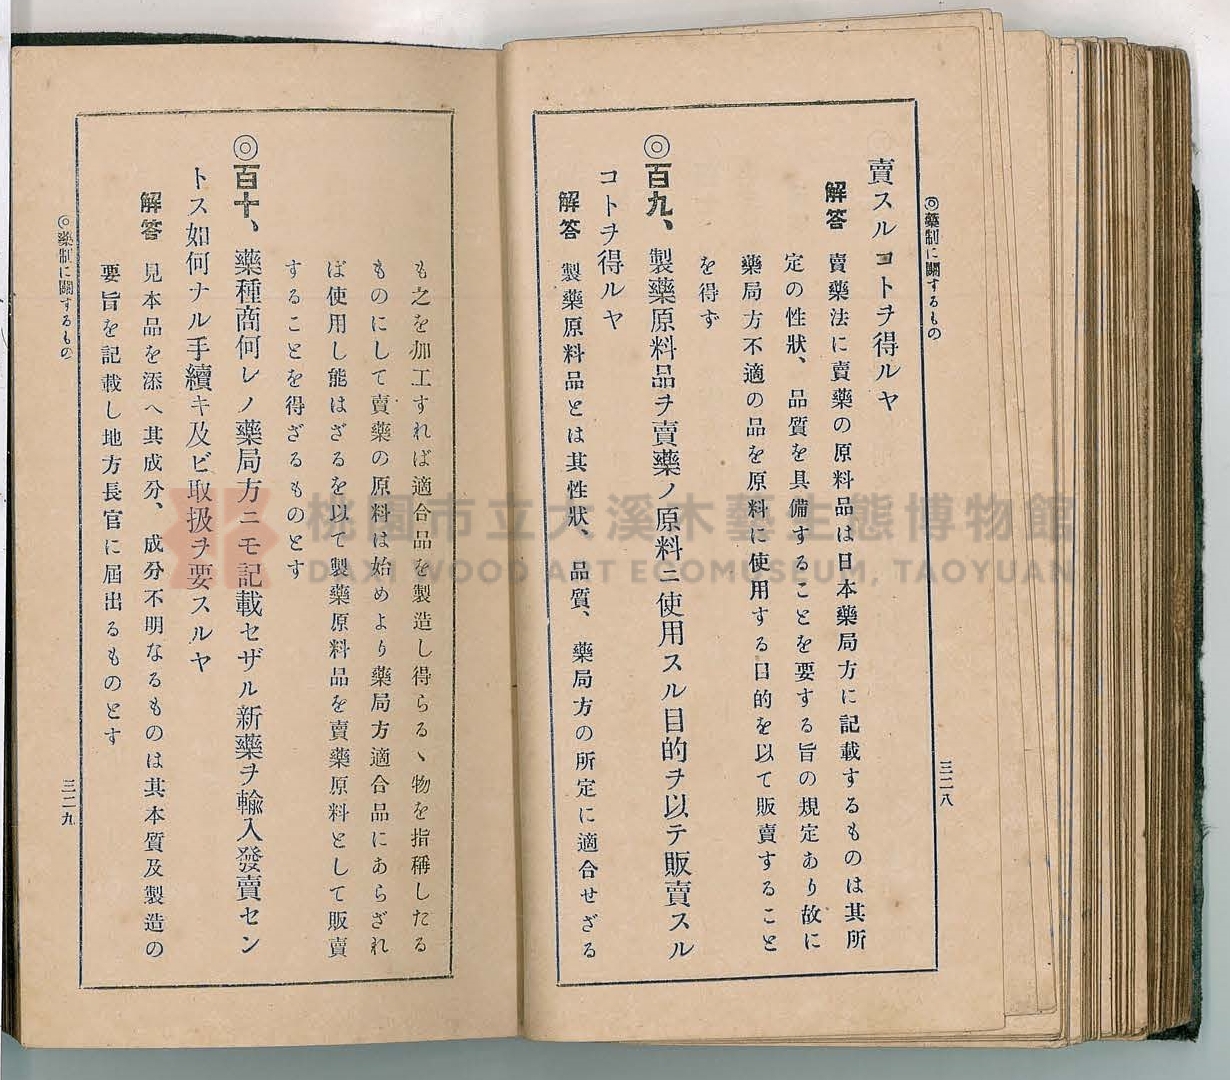 ◎藥制に關するもの
三二八
賣スルコトヲ得ルヤ
解答 賣藥法に賣藥の原料品は日本藥局方に記載するものは其所
定の性狀、品質を具備することを要する旨の規定あり故に
藥局方不適の品を原料に使用する目的を以て販賣すること
を得ず
◎百九、製藥原料品ヲ賣藥ノ原料ニ使用スル目的ヲ以テ販賣スル
コトヲ得ルヤ
解答 製藥原料品とは其性狀、品質、藥局方の所定に適合せざる
も之を加工すれば適合品を製造し得らるヽ物を指稱したる
ものにして賣藥の原料は始めより藥局方適合品にあらざれ
ば使用し能はざるを以て製藥原料品を賣藥原料として販賣
することを得ざるものとす
◎百十、藥種商何レノ藥局方ニモ記載セザル新藥ヲ輸入發賣セン
トス如何ナル手續キ及ビ取扱ヲ要スルヤ
解答 見本品を添へ其成分、成分不明なるものは其本質及製造の
要旨を記載し地方長官に屆出るものとす
◎藥制に關するもの
三二九
桃園市立大溪木藝生態博物館
DAXI WOOD ART ECOMUSEUM, TAOYUAN